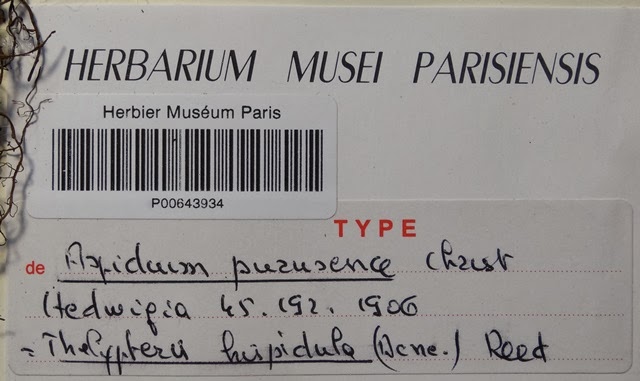 HERBARIUM MUSEI PARISIENSIS
Herbier Muséum Paris
P00643934
TYPE
de Aspidium purusence Christ
Hedwigia 45. 192. 1906
= Thelypteris hispidula (Dcne.) Reed